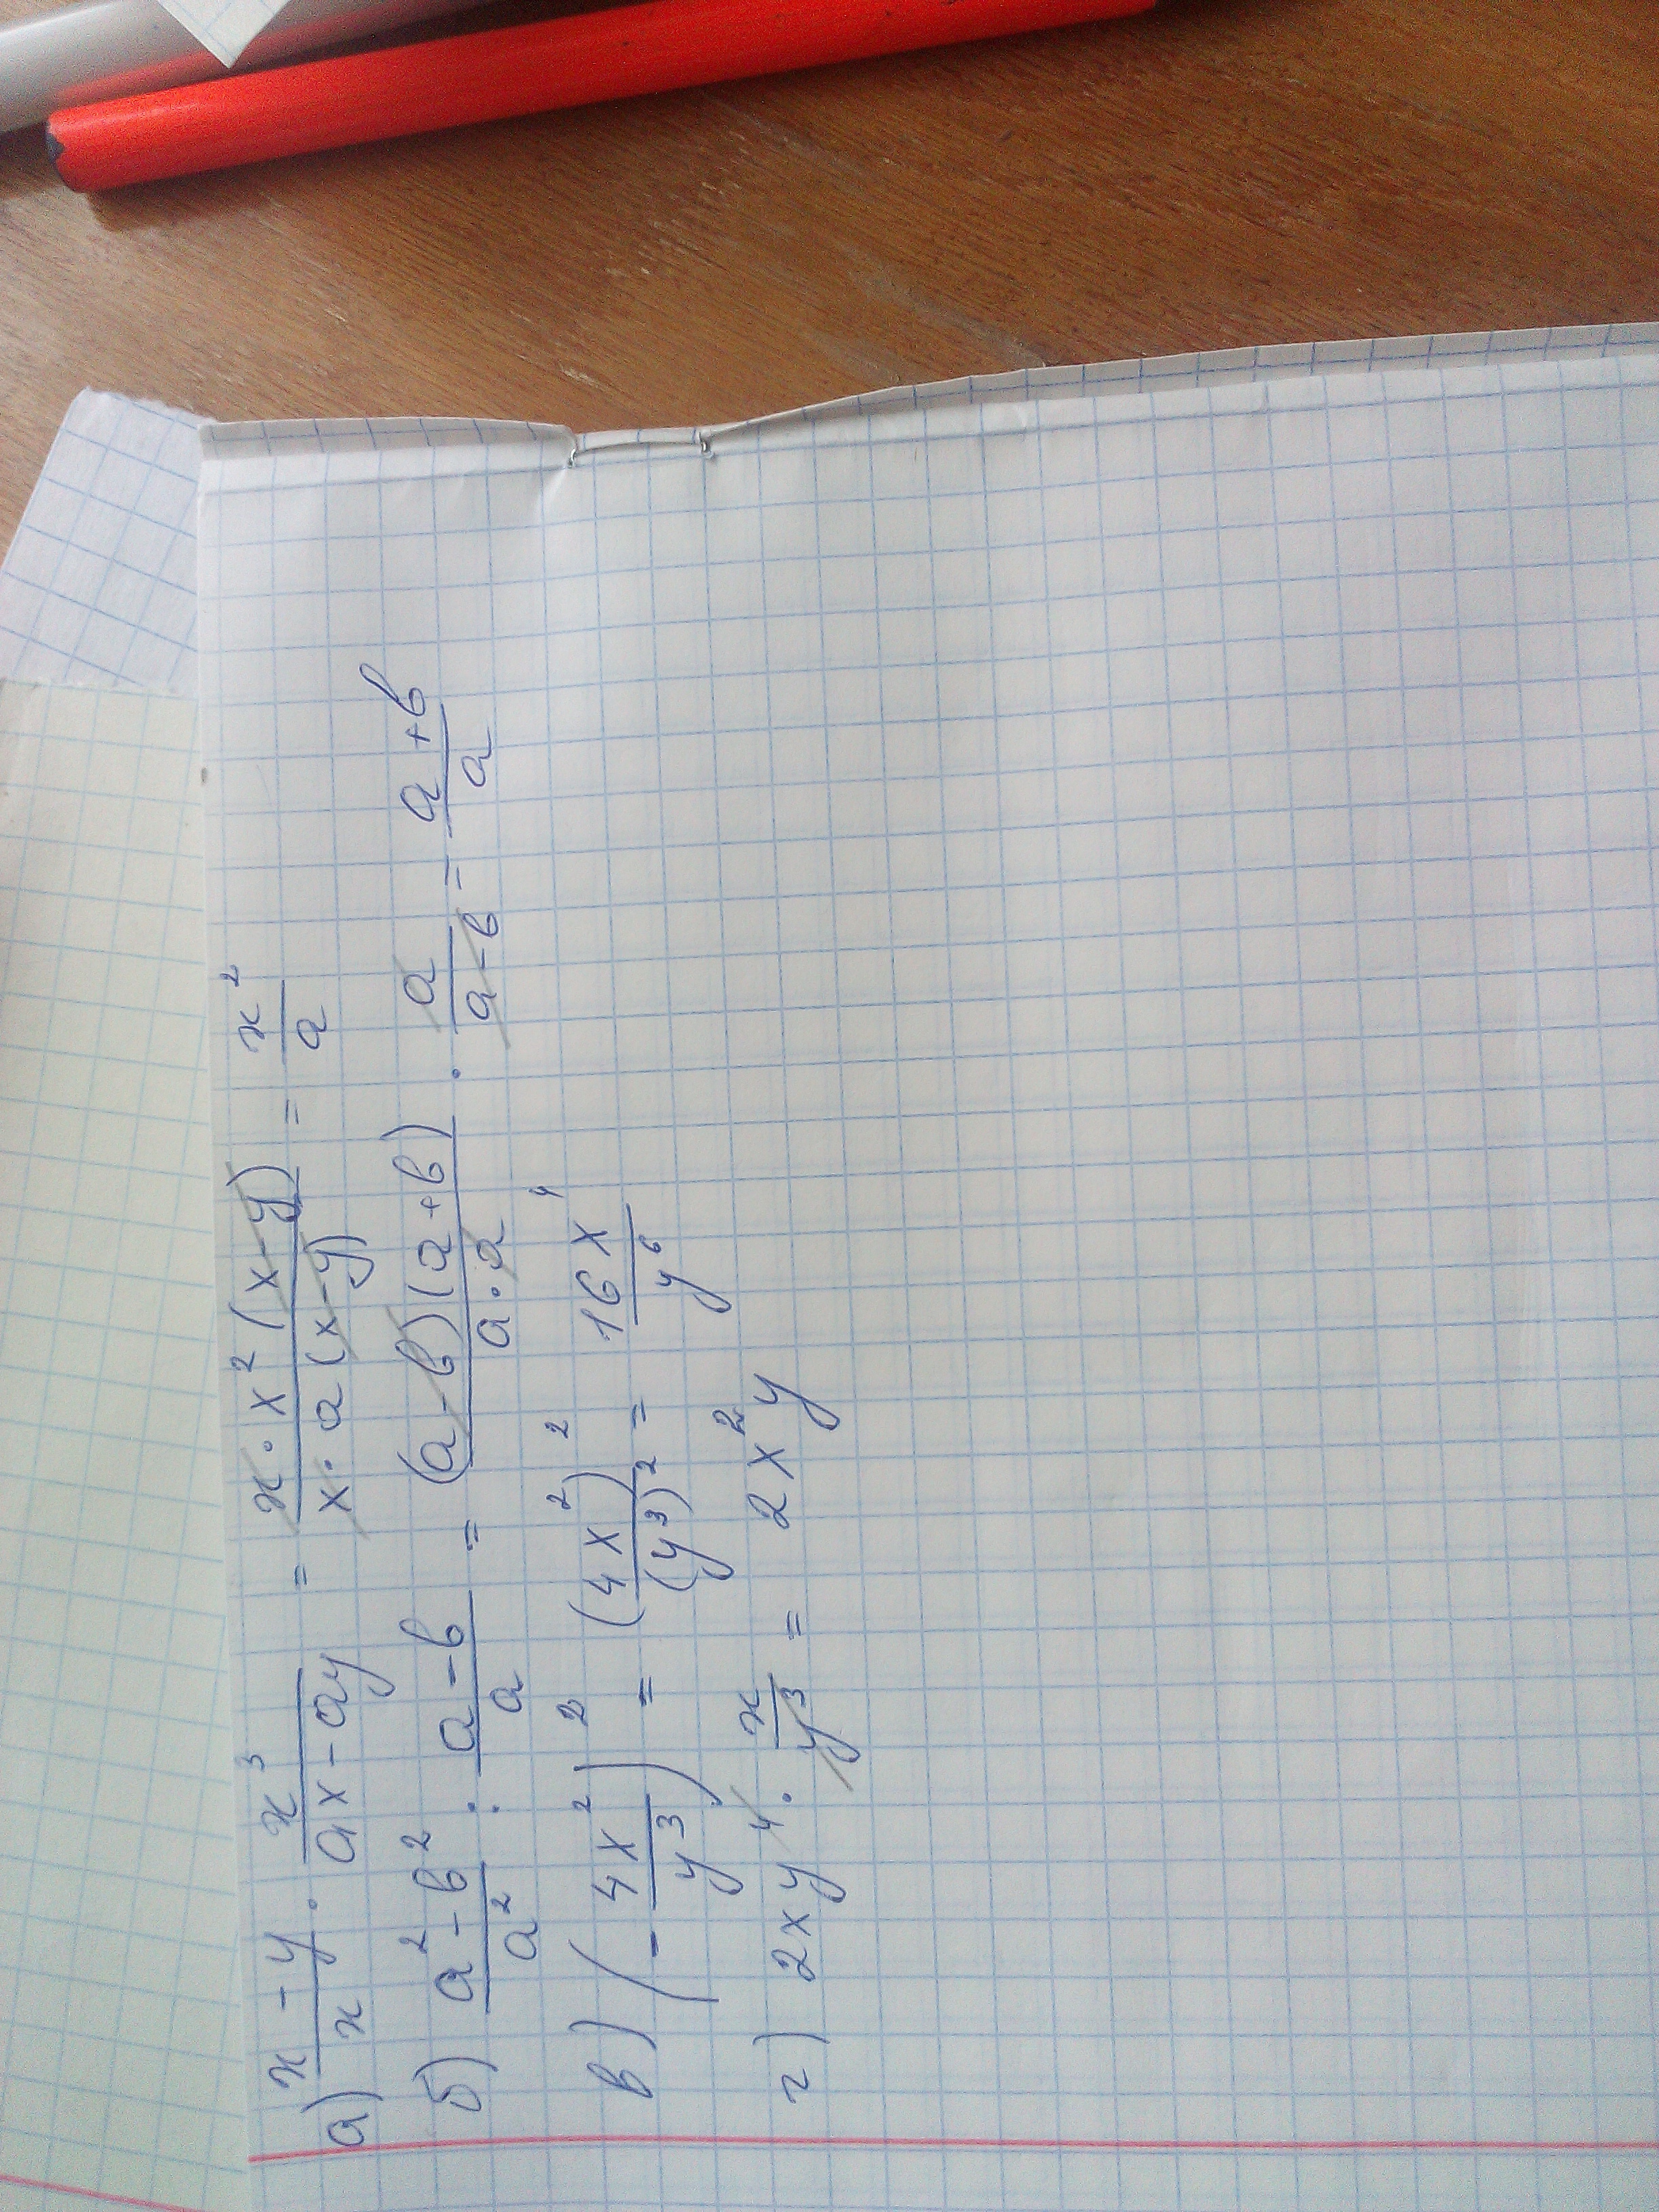 а) (x - y)/x · x³/(ax - ay) = (x · x² (x - y))/(x · a (x - y)) = x²/a
б) (a² - b²)/a² : (a - b)/a = ((a - b)(a + b))/(a · a) · a/(a - b) = (a + b)/a
в) (- 4x²/y³)² = (4x²)²/(y³)² = 16x⁴/y⁶
г) 2xy⁴ · x/y³ = 2x²y